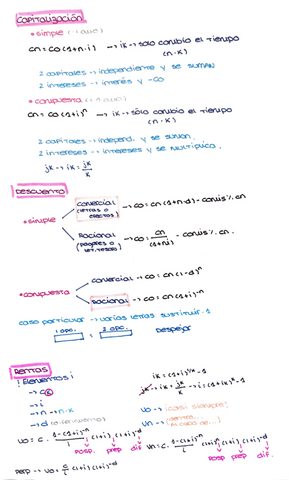 CAPITALIZACIÓN
• simple (-1 año)
cn = co (1+n·i) → ik → sólo cambio el tiempo
(n·k)
2 capitales → independiente y se SUMAN
2 intereses → interés y -CO
• compuesta (+1 año)
cn = co (1+i)ⁿ → ik → sólo cambio el tiempo
(n·k)
2 capitales → independ. y se suman.
2 intereses → intereses y se MULTIPLICA.
jk → ik = jk/k
DESCUENTO
• simple
Comercial (letras o efectos) → co = cn (1-n·d) - comis % cn.
Racional (pagarés o let. tesoro) → co = cn/(1+ni) - comis % cn.
• compuesta
comercial → co = cn (1-d)ⁿ
Racional → co = cn (1+i)⁻ⁿ
caso particular → varias letras sustituir 1
1 opc. = 2 opc. Despejar
RENTAS
! Elementos ¡
→ c
→ i
→ n → n·k
→ d (diferimiento)
ik = (1+i)^1/k - 1
jk → ik = jk/k → i = (1+ik)^k - 1
Vo → (casi siempre)
Vn →
Vo = c · 1-(1+i)⁻ⁿ/i (1+i) (1+i)^-d
Vn = c · 1-(1+i)⁻ⁿ/i (1+i) (1+i)^-d
POSP PREP DIF
POSP PREP DIF
PERP → Vo = c/i (1+i) (1+i)^-d